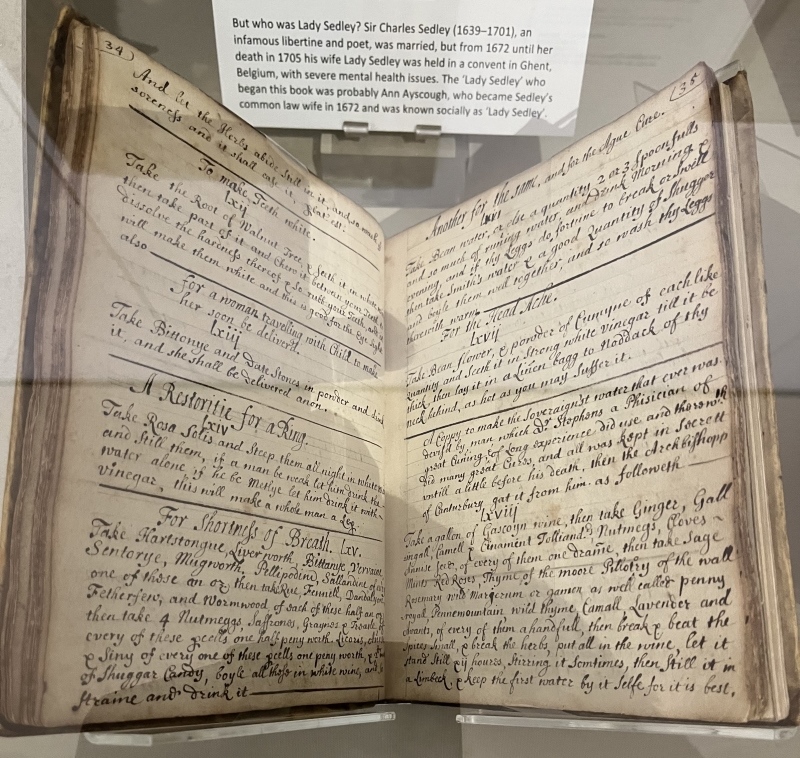 But who was Lady Sedley? Sir Charles Sedley (1639–1701), an
infamous libertine and poet, was married, but from 1672 until her
death in 1705 his wife Lady Sedley was held in a convent in Ghent,
Belgium, with severe mental health issues. The 'Lady Sedley' who
began this book was probably Ann Ayscough, who became Sedley's
common law wife in 1672 and was known socially as 'Lady Sedley'.
34)
And let the Herbs abide still in it, and so
soreness and it shall ease it.
To make Teeth white.
lxij
Take the Root of Walnut Tree, & Seeth it in
then take part of it and Chew it between your Teeth
dissolve the hareness thereof & So rub your Teeth, and it
will make them white and this is good for the Eye Sight
also
For a woman travelling with Child to make
her soon be deliver'd.
lxiij
Take Bittonye and Date Stones in powder and
it, and she shall be delivered anon.
A Restoritie for a King.
lxiv
Take Rosa Solis and Steep them all night in
and Still them, if a man be weak let him drink the
water alone if he be let him drink it with
vinegar, this will make a whole man a Leg.
For Shortness of Breath. lxv.
Take Hartstongue, Liverworth, Bittanye, Vervaine,
Sentorye, Mugworth, Pellepodine, Sallandine of
one of those an oz then take Rue, Fennell,
Fetherfew, and Wormwood of each of these half an
then take 4 Nutmeggs, Saffrone, Graynes &
every of these half peny worth, Licoris,
& Siny of every one of these one peny worth, &
of Shuggar Candy, boyle all those in white wine, and
straine and drink it
(35
Another for the same, and for the Ague Eare.
lxvi
Take Bean water, or else a quantity 2 or 3 Spoonfulls
and so much of runing water, and Drink Morning &
evening, and if thy Leggs do fortune to break or Swill
then take Smith's water & a good Quantity of Shuggar
and boyle them well together, and so wash thy Leggs
therewith warm.
For the Head Ache.
lxvij
Take Bean flower, & ponder of Cumyne of each like
quantity and Seeth it in Strong white vinegar till it be
thick then lay it in a Linen bagg to Noddack of thy
neck behind, as hot as you may Suffer it.
A Coppy to make the Soveraignst water that ever was
devis'd by man, which Dr Stephans a Phisician of
great Cuning, of Long experience did use and therewth
did many great Cures, and all was kept in Secrett
untill a little before his death, then the Archbishopp
of Canturbury gat it from him. as followeth
lxviij
Take a gallon of Gascoyn wine, then take Ginger, Gall
ingall, Camell & Cinament Tolliand: Nutmegs, Cloves
seed, of every of them one drame, then take Sage
Mints Red Roses Thyme of the moore Pillotry of the wall
Rosemary wild Margerum or gamen as well called penny
royall, Pennemountain wild Thyme, Camall, Lavender and
of every of them a handfull, then break & beat the
Spices Small, & break the herbs, put all in the wine, let it
Stand Still hours, Stirring it Somtimes, then Still it in
a Limbeck, & keep the first water by it Selfe for it is best.